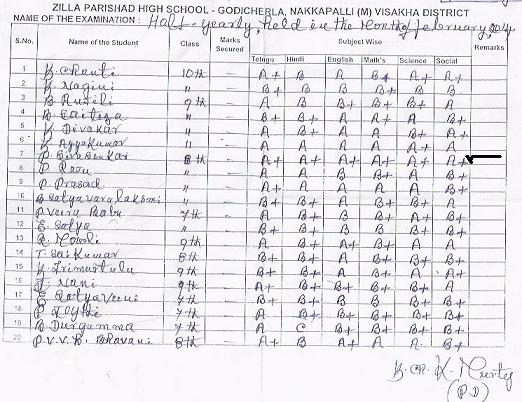 ZILLA PARISHAD HIGH SCHOOL - GODICHERLA, NAKKAPALLI (M) VISAKHA DISTRICT
NAME OF THE EXAMINATION : Half-yearly, held in the Month of february,
S.No. Name of the Student Class Marks Secured Subject Wise Remarks
Telugu Hindi English Math's Science Social
1 K. Chanti 10th — A+ B A B+ A+ A+
2 K. Nagini " — B B B B B B
3 9th — A B B+ B+ B+ A
4 " — B+ B+ A A+ A B+
5 K. Divakar " — A A A B+ A
6 K. Ayyakumar 11 — A A A A A
7 8th — A+ A+ A+ A+ A A+
8 P. Ravu " — A A B B+ A B+
9 P. Prasad " — A+ A A A A B+
10 B. Satyavaralakshmi " — B+ B+ A B+ B+ A
11 P. Veera Babu 7th — A B+ B B B+ A
12 E. Satya " — B+ B B A A B+
13 R. Mowli 9th — A B+ A+ B+ A A
14 T. Sai Kumar 8th — B+ B+ A A A B+
15 K. Trimurtulu 9th — B+ B+ A B+ A A+
16 J. Nani 9th — A+ B+ B+ B+ A B+
17 E. Satyaveni 7th — B+ B+ B B B+ B+
18 7th — A B+ B+ B+ B+ B+
19 B. Durgamma 7th — A C B+ B+ A B+
20 P.V.V.B. Bhavani 8th — A+ B A A A B+
K. Murty
(P.D)